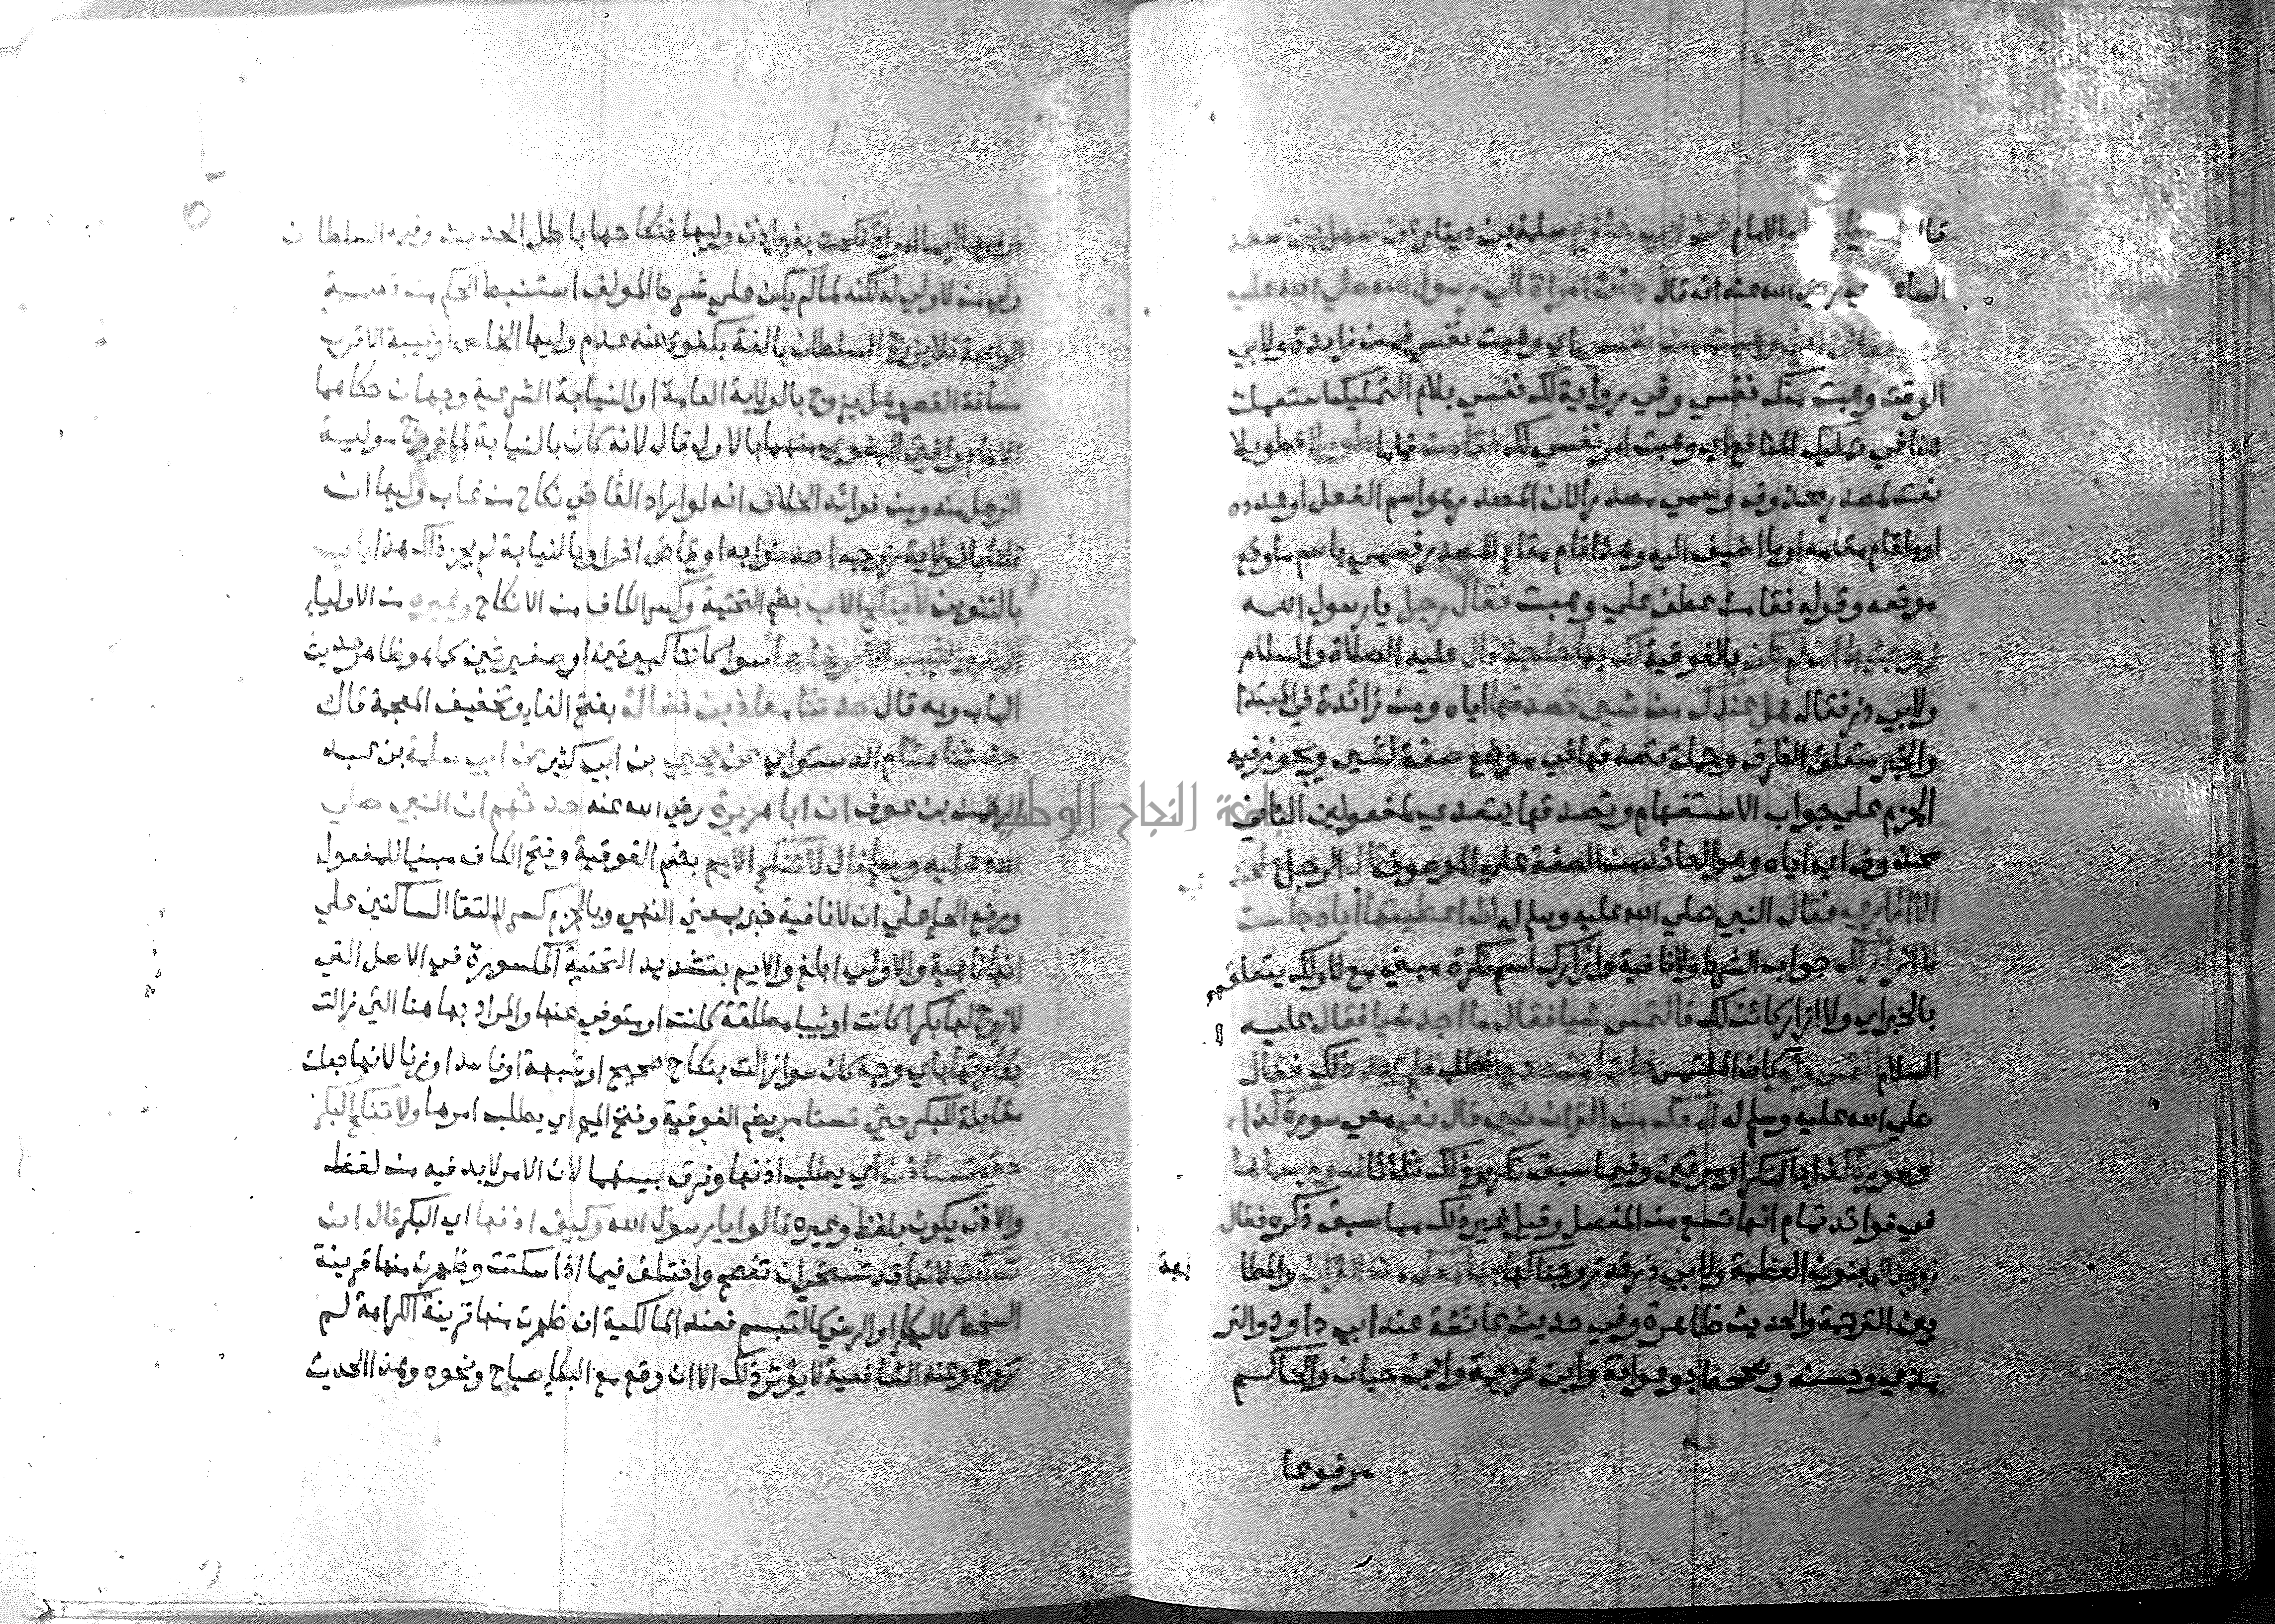 الامام عن ابي حازم سلمة بن دينار عن سهل بن سعد
الساعدي رضي الله عنه انه قال جأت امراة الي رسول الله صلي الله عليه
فقالت اني وهبت من نفسي اي وهبت نفسي فمن زايدة ولابي
الوقت وهبت منك نفسي وفي رواية لك نفسي بلام التمليك استعملت
هنا في تمليك المنافع اي وهبت امر نفسي لك فقامت قياما طويلا فطويلا
نعت لمصدر محذوف وسمي مصدرا لان المصدر هو اسم الفعل او عدده
او ما قام مقامه او ما اضيف اليه وهذا قام مقام المصدر فسمي باسم ما وقع
موقعه وقوله فقامت عطف علي وهبت فقال رجل يا رسول الله
زوجنيها ان لم تكن بالفوقية لك بها حاجة قال عليه الصلاة والسلام
ولابي ذر فقال هل عندك من شي تصدقها اياه ومن زائدة في المبتدا
والخبر متعلق الظرف وجملة تصدقها في موضع صفة لشي ويجوز فيه
الجزم علي جواب الاستفهام وتصدقها يتعدي لمفعولين الثاني
محذوف اي اياه وهو العائد من الصفة علي الموصوف قال الرجل ما عندي
الا ازاري فقال النبي صلي الله عليه وسلم له ان اعطيتها اياه جلست
لا ازار لك جواب الشرط ولا نافية وازارك اسم نكرة مبني مع لا ولك يتعلق
بالخبر اي ولا ازار كائن لك فالتمس شيا فقال ما اجد شيا فقال عليه
السلام التمس ولو كان الملتمس خاتما من حديد فطلب فلم يجد ذلك فقال
صلي الله عليه وسلم له امعك من القران شي قال نعم معي سورة كذا
وسورة كذا بالتكرار مرتين وفيما سبق تكرير ذلك ثلاثا لسور سماها
في فوائد تمام انها تسع من المفصل وقيل غير ذلك مما سبق ذكره فقال
زوجناكها بنون العظمة ولابي ذر قد زوجناكها بما معك من القران والمطا
بقة
بين الترجمة والحديث ظاهرة وفي حديث عائشة عند ابي داود والتر
مذي وحسنه وصححه ابو عوانة وابن خزيمة وابن حبان والحاكم
مرفوعا
مرفوعا ايما امراة نكحت بغير اذن وليها فنكاحها باطل الحديث وفيه السلطان
ولي من لا ولي له لكنه لما لم يكن علي شرط المولف استنبط الحكم من قصة
الواهبة فلا يزوج السلطان بالغة بكفو عند عدم وليها الخاص او غيبة الاقرب
مسافة القصر وهل يزوج بالولاية العامة او النيابة الشرعية وجهان حكاهما
الامام وافتي البغوي منهما بالاول قال لانه كان بالنيابة لما زوج مولية
الرجل منه ومن فوائد الخلاف انه لو اراد القاضي نكاح من غاب وليها ان
قلنا بالولاية زوجه احد نوابه او قاض اخر او بالنيابة لم يجز ذلك هذا باب
بالتنوين لا ينكح الاب بضم التحتية وكسر الكاف من الانكاح وغيره من الاولياء
البكر والثيب الا برضاها سوا كانتا كبيرتين او صغيرتين كما هو ظاهر حديث
الباب وبه قال حدثنا معاذ بن فضالة بفتح الفا وتخفيف المعجمة قال
حدثنا هشام الدستواي عن يحيي بن ابي كثير عن ابي سلمة بن عبد
الرحمن بن عوف ان ابا هريرة رضي الله عنه حدثهم ان النبي صلي
الله عليه وسلم قال لا تنكح الايم بضم الفوقية وفتح الكاف مبنيا للمفعول
ورفع الحا علي ان لا نافية خبر بمعني النهي وبالجزم كسر لالتقا الساكنين علي
انها ناهية والاولي ابلغ والايم بتشديد التحتية المكسورة في الاصل التي
لا زوج لها بكرا كانت او ثيبا مطلقة كانت او متوفي عنها والمراد بها هنا التي زالت
بكارتها باي وجه كان سوا زالت بنكاح صحيح او شبهة او فاسد او زنا لانها جعلت
مقابلة للبكر حتي تستامر بضم الفوقية وفتح الميم اي يطلب امرها ولا تنكح البكر
حتي تستاذن اي يطلب اذنها وفرق بينهما لان الامر لا بد فيه من لفظ
والاذن يكون بلفظ وغيره قالوا يا رسول الله وكيف اذنها اي البكر قال ان
تسكت لانها قد تستحي ان تفصح واختلف فيما اذا سكتت وظهرت منها قرينة
السخط كالبكا او الرضي كالتبسم فعند المالكية ان ظهرت منها قرينة الكراهة لم
تزوج وعند الشافعية لا يوثر ذلك الا ان وقع مع البكا صياح ونحوه وهذا الحديث